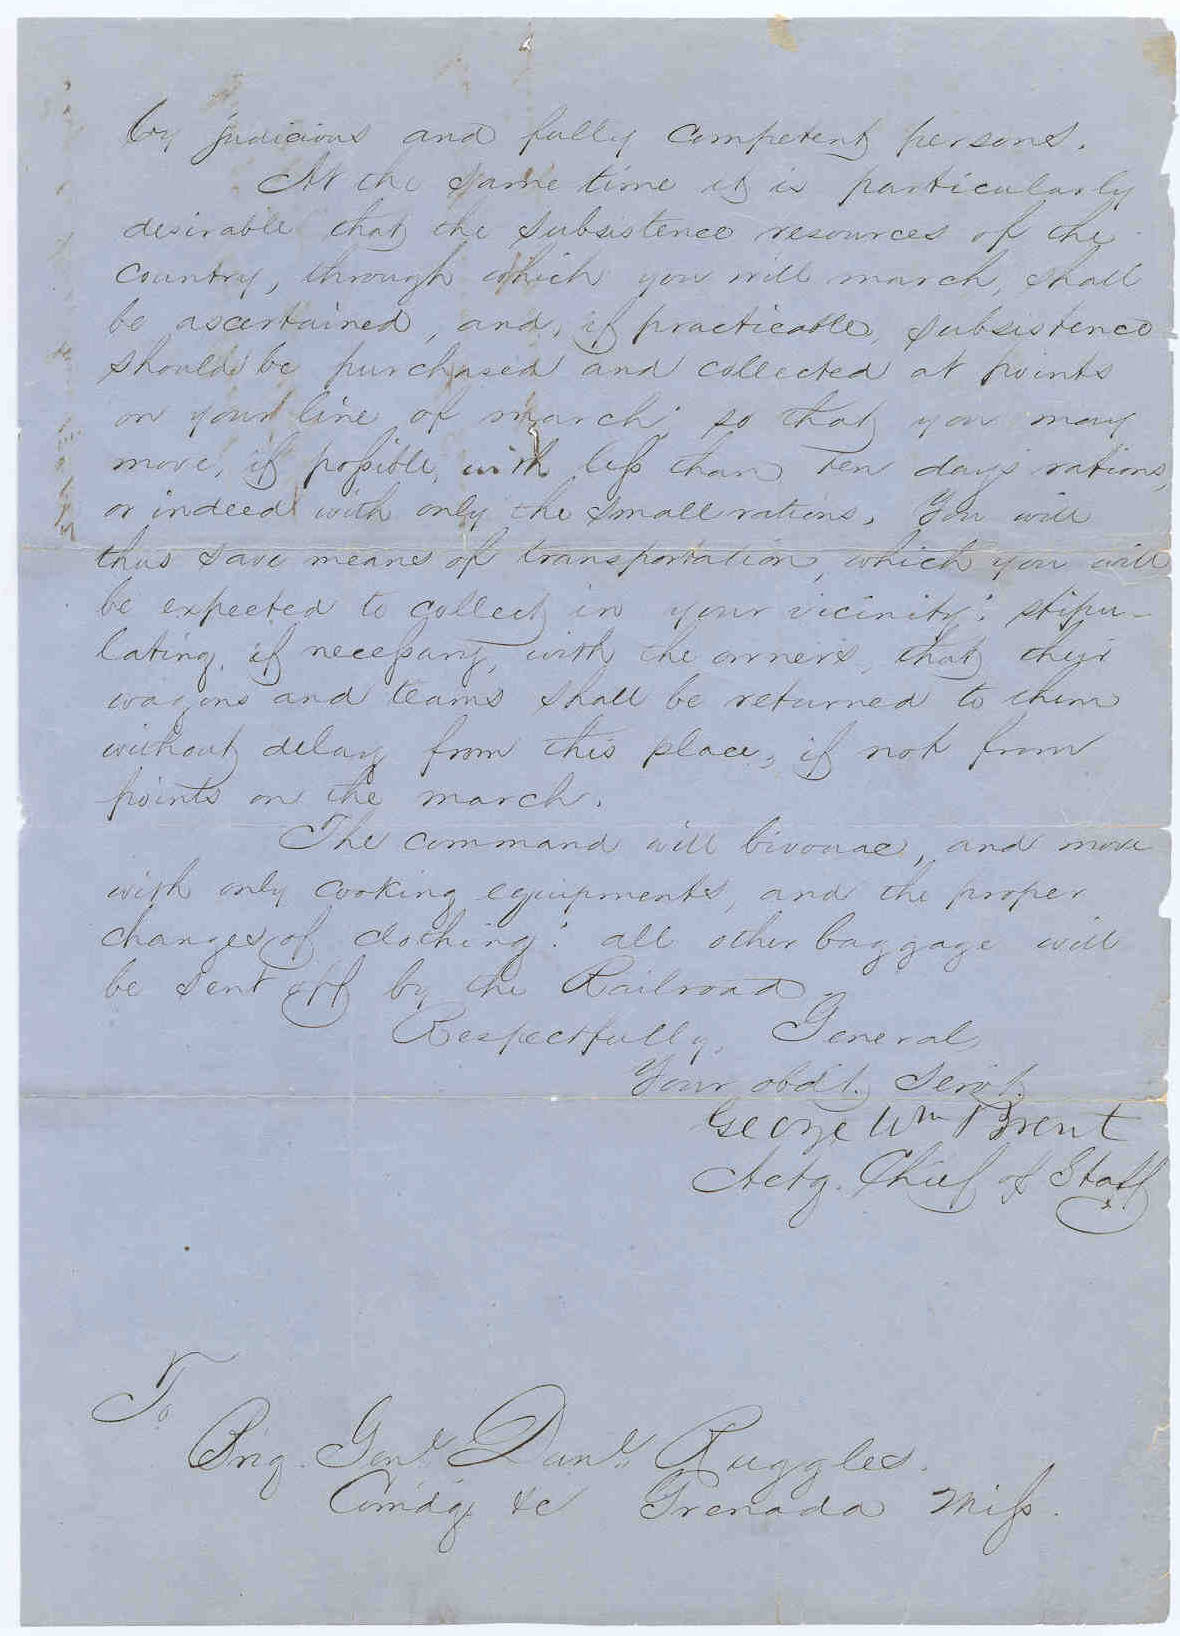 by judicious and fully competent persons.
At the same time it is particularly
desirable that the subsistence resources of the
country, through which you will march, shall
be ascertained, and, if practicable, subsistence
should be purchased and collected at points
on your line of march; so that you may
move, if possible, with less than ten days rations,
or indeed with only the small rations. You will
thus save means of transportation, which you will
be expected to collect in your vicinity; stipu-
lating, if necessary, with the owners, that their
wagons and teams shall be returned to them
without delay from this place, if not from
points on the march.
The command will bivouac, and move
with only cooking equipments, and the proper
changes of clothing; all other baggage will
be sent off by the Railroad.
Respectfully, General,
Your obdt. Servt.
George Wm Brent
Actg. Chief of Staff
To
Brig. Genl. Danl. Ruggles.
Comdg &c Grenada Miss.